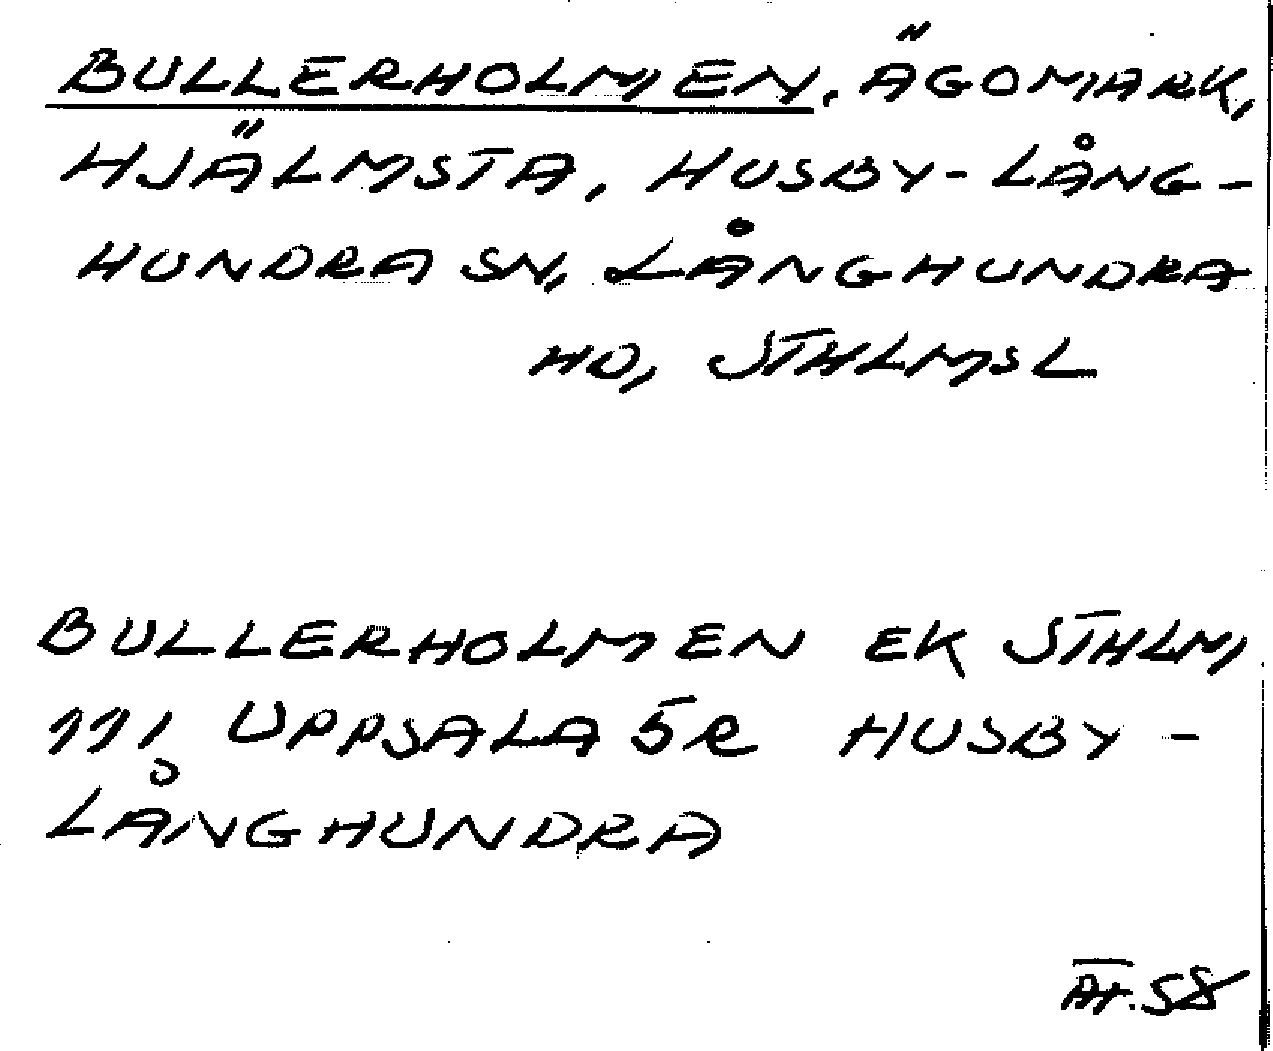 BULLERHOLMEN, ÄGOMARK,
HJÄLMSTA, HUSBY-LÅNG-
HUNDRA SN, LÅNGHUNDRA
HD, STHLMSL
BULLERHOLMEN EK STHLM,
111, UPPSALA 5R HUSBY-
LÅNGHUNDRA
58